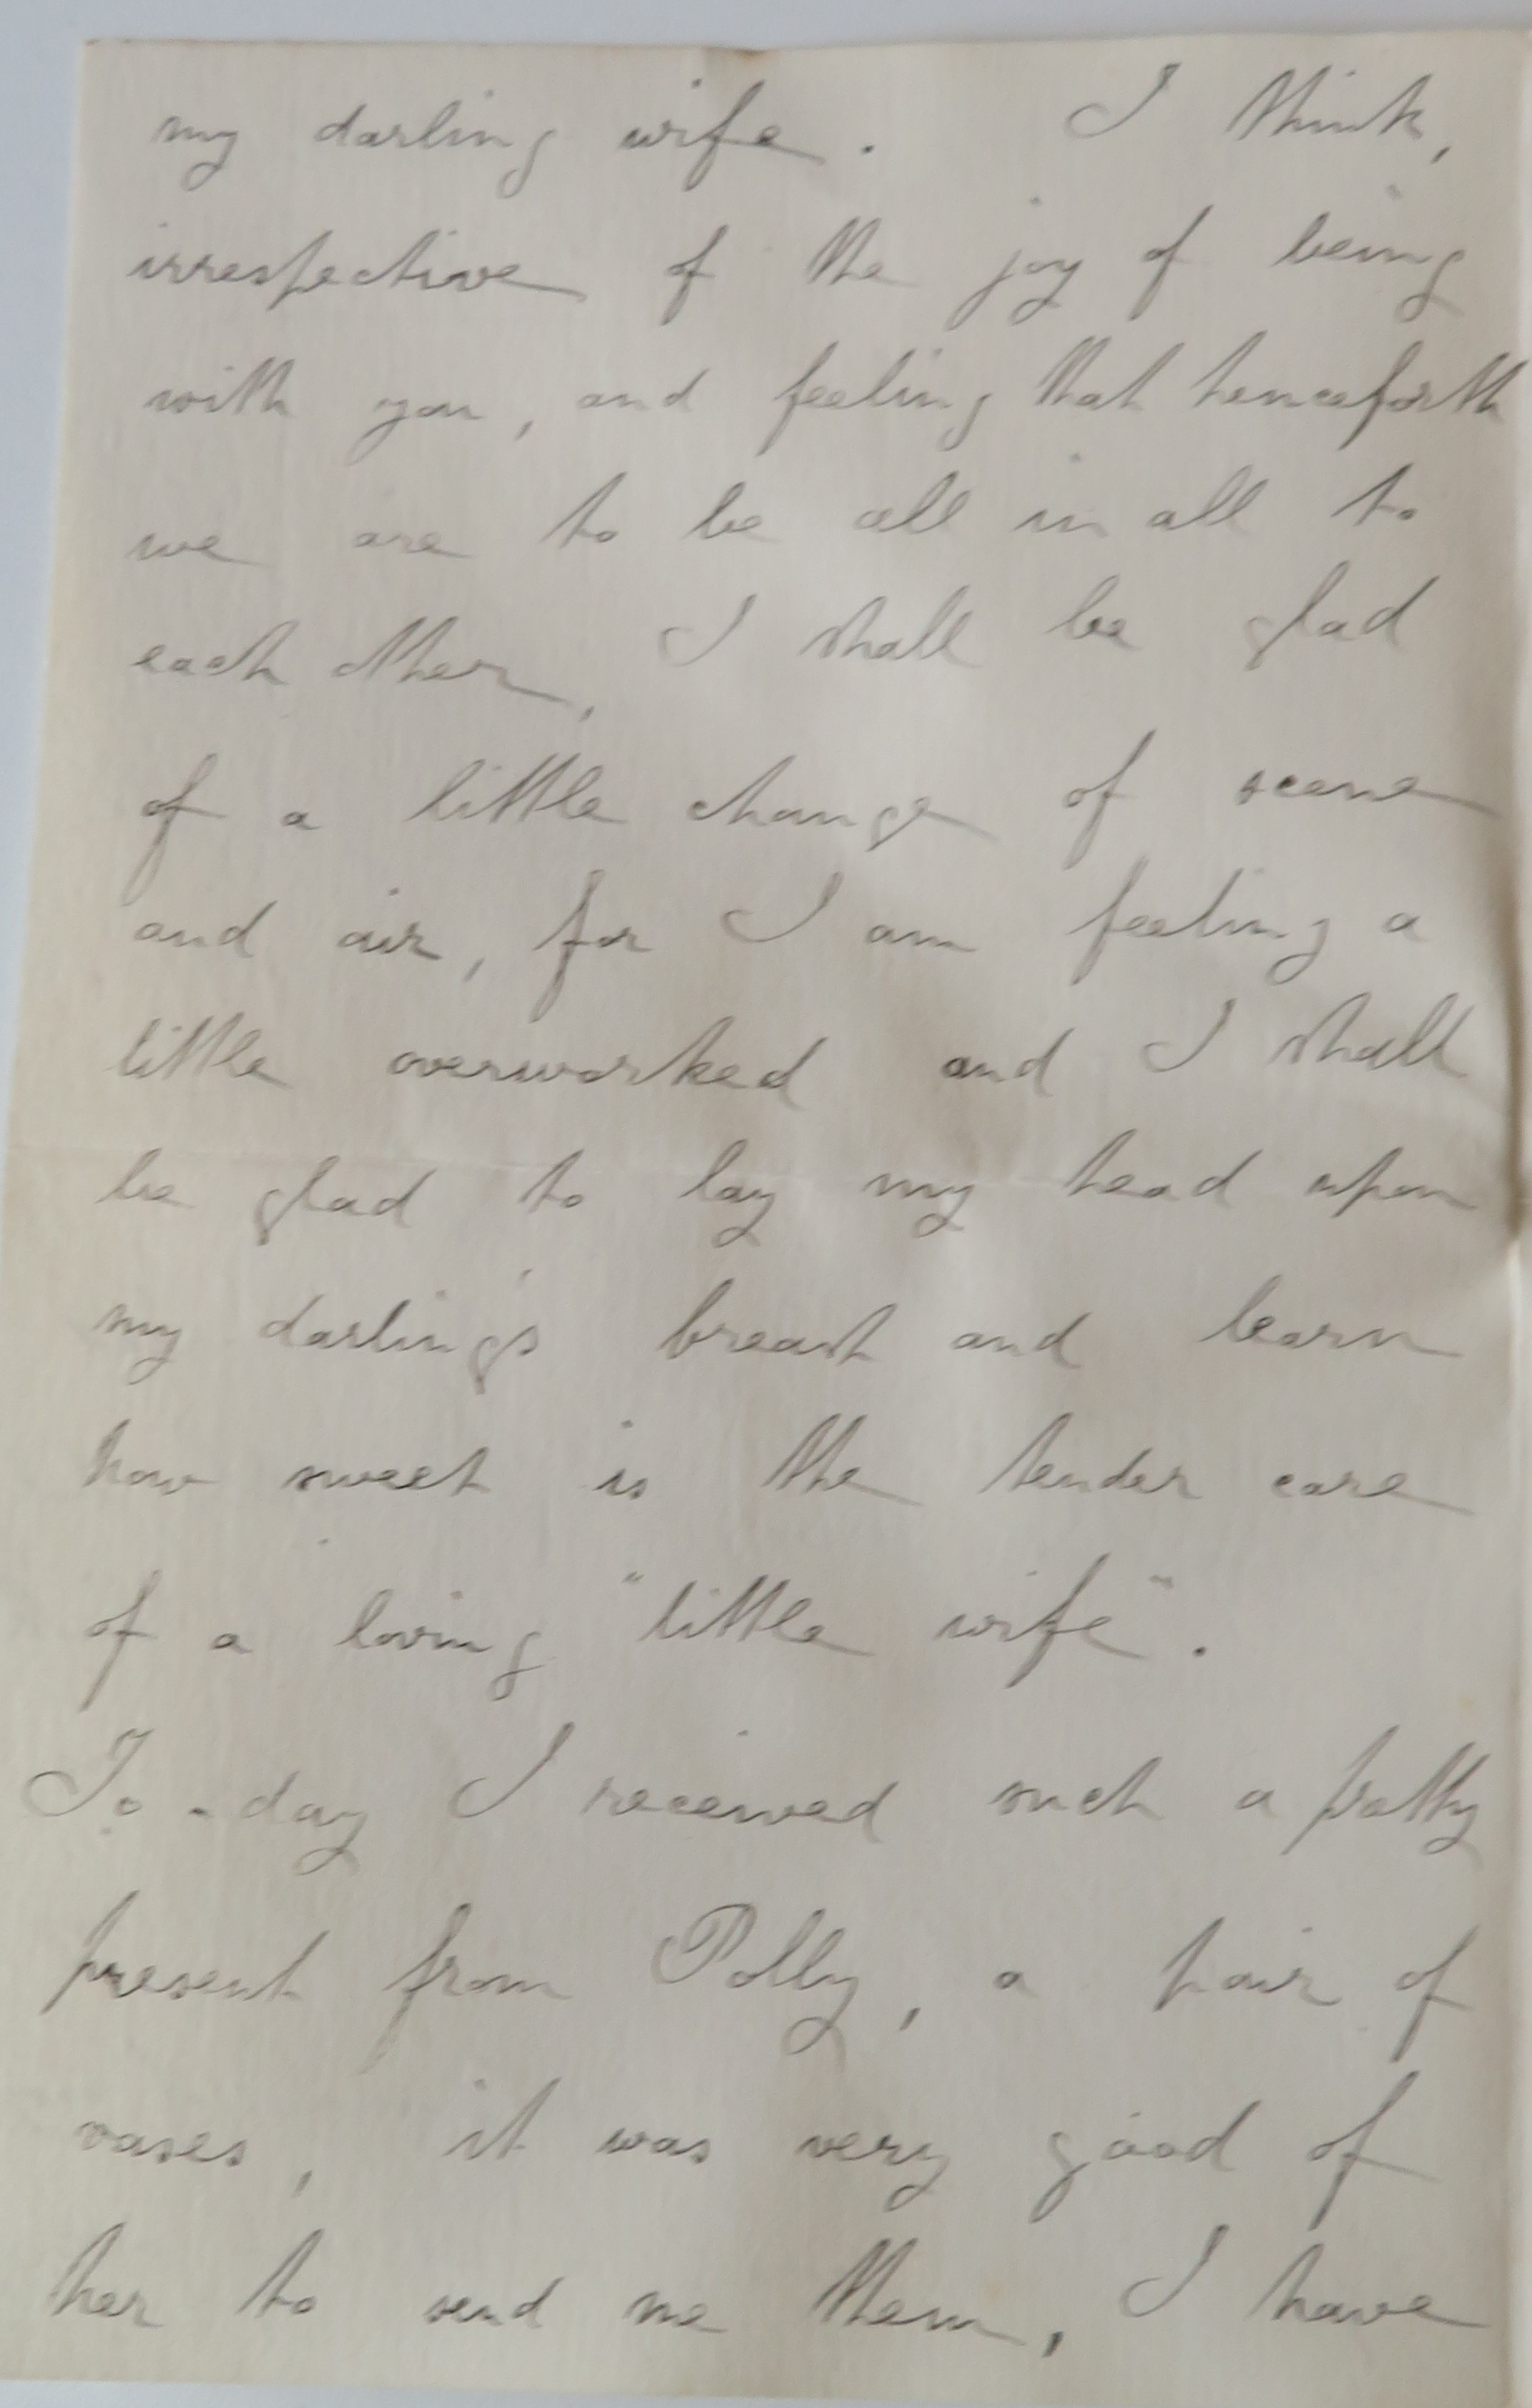 my darling wife. I think,
irrespective of the joy of being
with you, and feeling that henceforth
we are to be all in all to
each other, I shall be glad
of a little change of scene
and air, for I am feeling a
little overworked and I shall
be glad to lay my head upon
my darling's breast and learn
how sweet is the tender care
of a loving "little wife".
To-day I received such a pretty
present from Polly, a pair of
vases, it was very good of
her to send me them, I have